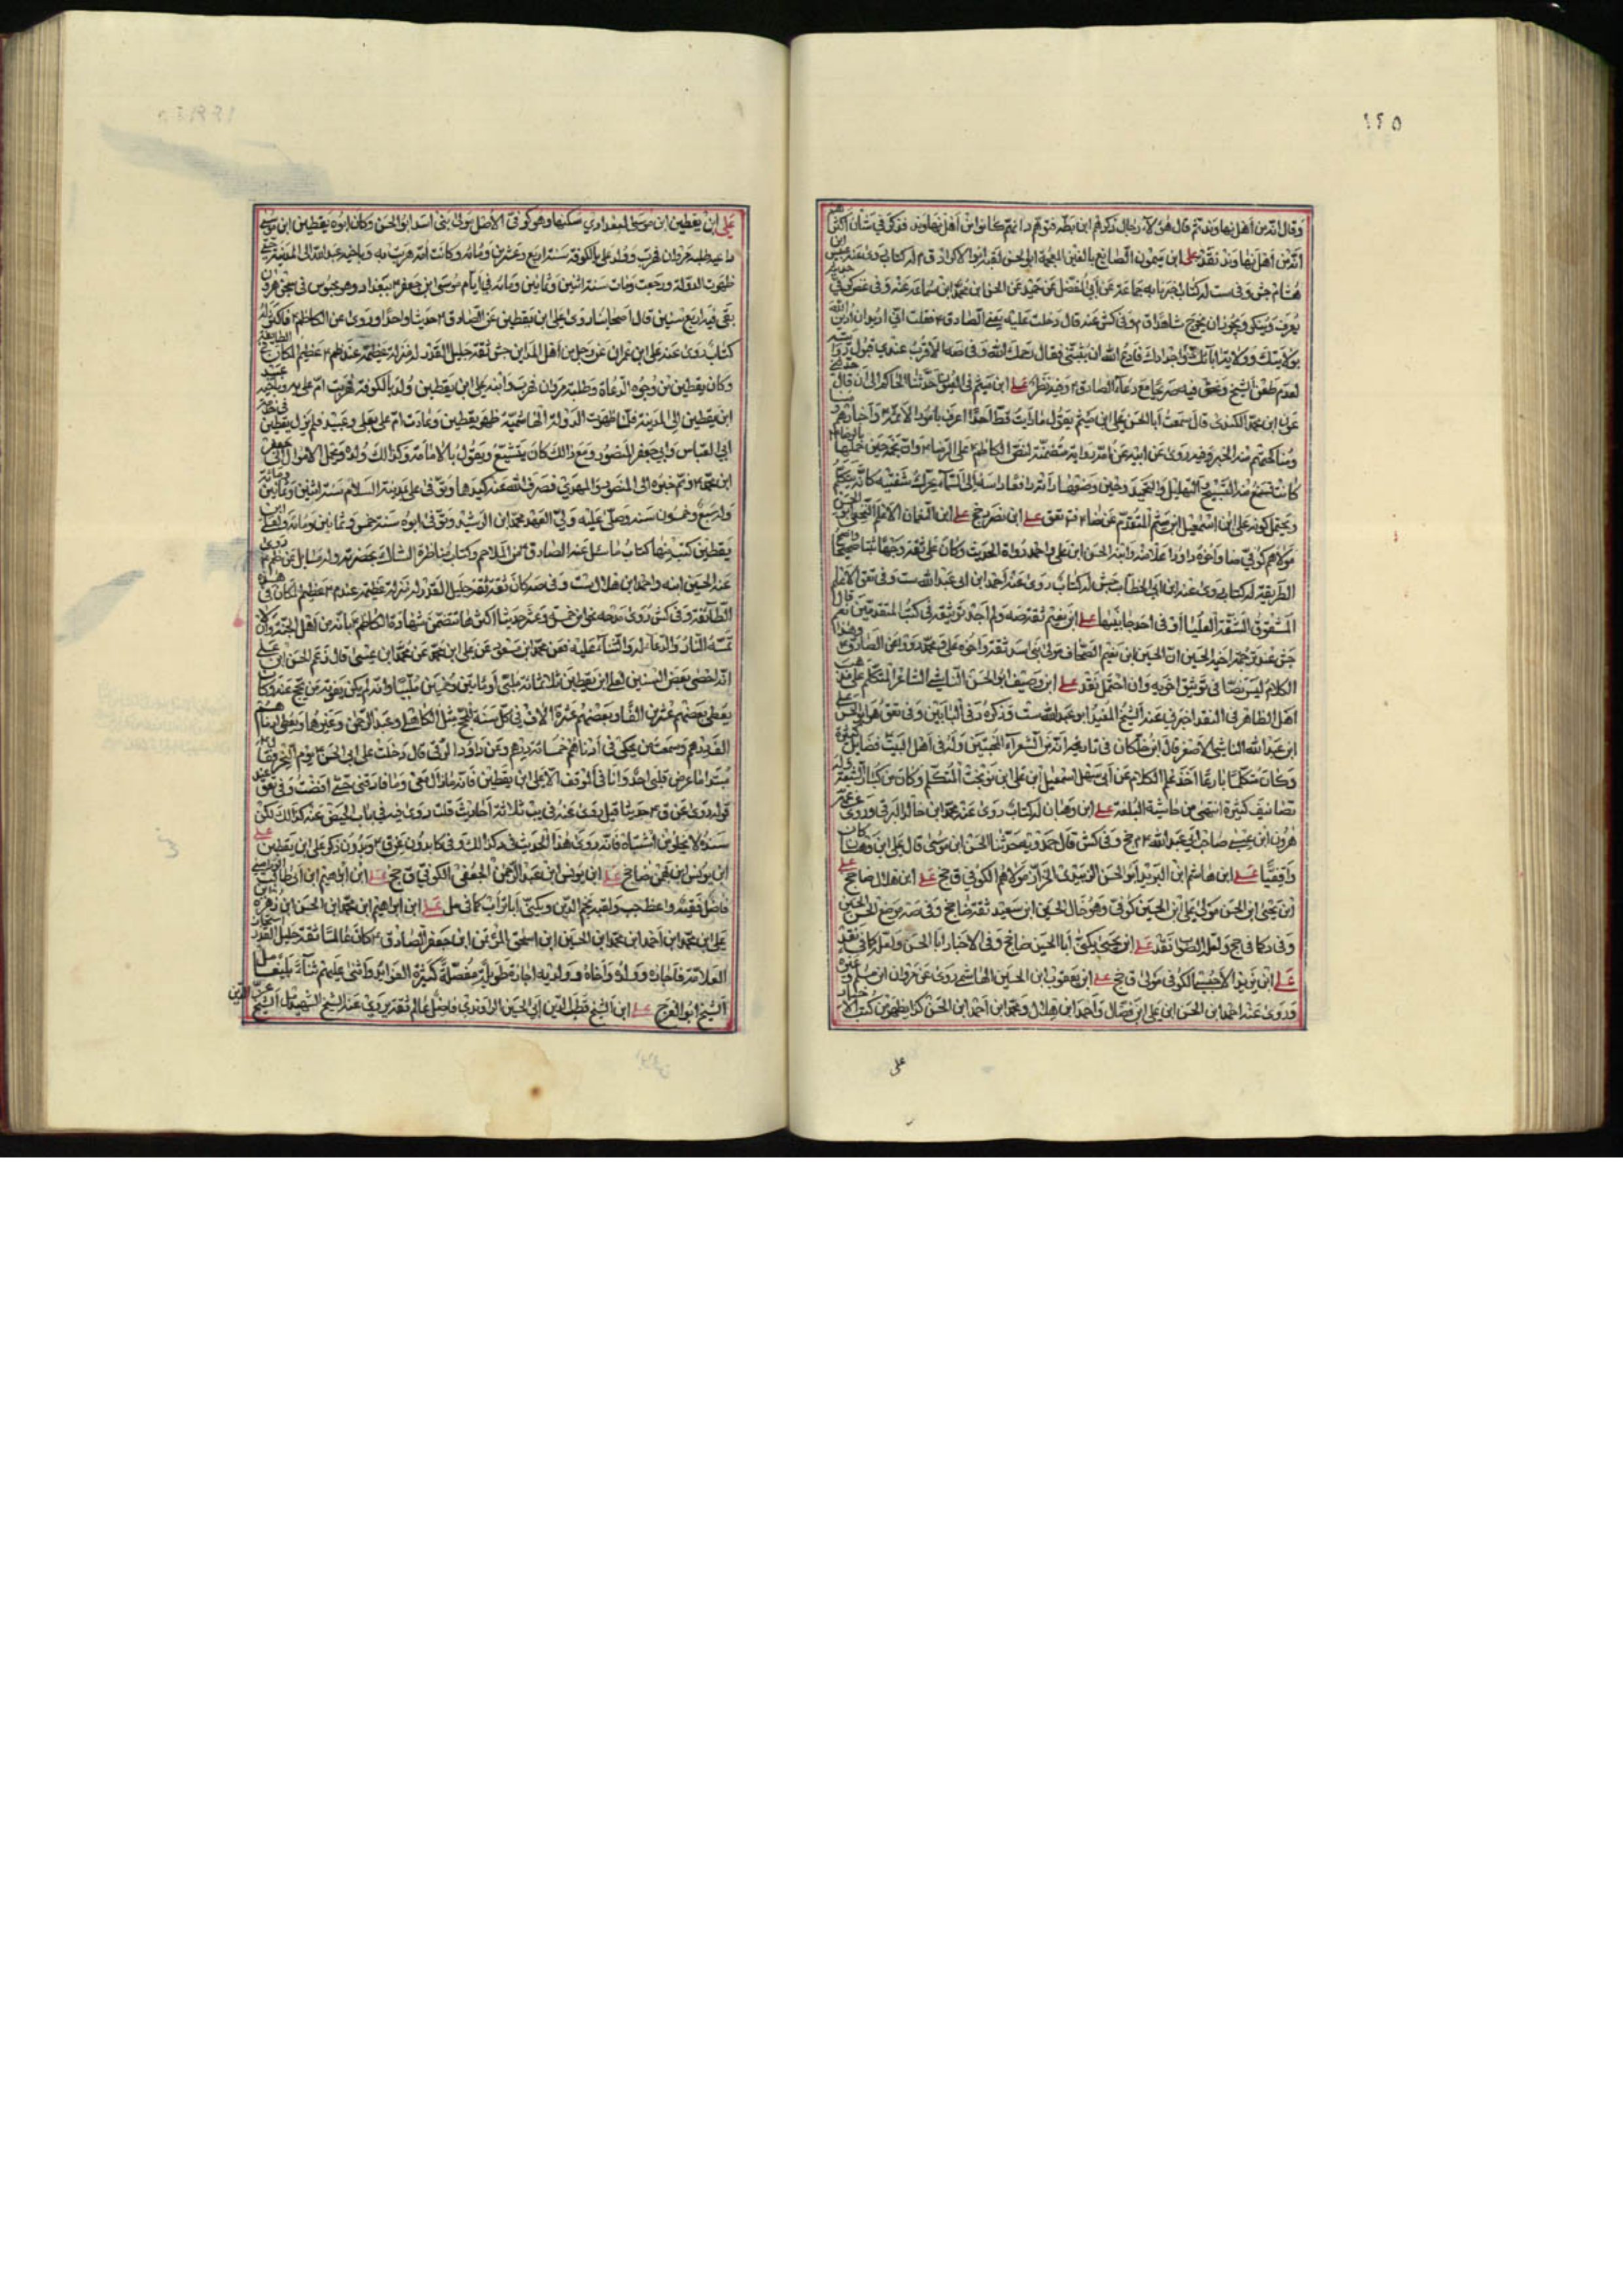 ١٢٥
وقال انه من اهل نهاوند ثم قال هؤلاء رجال ذكرهم ابن بطه
انه من اهل نهاوند نقد على ابن ميمون الصائغ بالغين المعجمة ابى الحسن لقبه ابوالاكراد ق م له كتاب روى عنه
هشام جش وفى ست له كتاب اخبرنا به جماعة عن ابي المفضل عن حميد عن الحسن ابن محمد ابن سماعة عنه وفى غض كوفى
يعرف وينكر ويجوز ان يخرج شاهدا ق وفى كش عنه قال دخلت عليه يعنى الصادق فقلت انى ادين الله
بولايتك وولاية ابائك واجدادك فادع الله ان يثبتنى فقال رحمك الله
لعدم طعن الشيخ وغض فيه صريحا مع دعاء الصادق وفيه نظر على ابن ميثم فى العيون حدثنا الحاكم الى ان قال
عون ابن محمد الكندى قال سمعت ابا الحسن على ابن ميثم يقول ما رايت قط احدا اعرف بامور الائمة واخبارهم
ومناكحهم منه الخبر وفيه روى عن ابيه عن امه رواية متضمنة لنص الكاظم على الرضا وان نجمه حين حملها
كانت تسمع منه التسبيح والتهليل والتمجيد وحين وضعها رافعا راسه الى السماء يحرك شفتيه كانه يتكلم
ويحتمل كونه على ابن اسمعيل ابن ميثم المتقدم عن ضا فى تعق على ابن نصر جخ على ابن النعمان الاعلم النخعى ابو الحسن
مولاهم كوفى ضا واخوه داود اعلا منه وابنه الحسن ابن على واحمد رواة الحديث وكان على ثقة وجها ثبتا صحيحا
الطريقة له كتاب روى عنه ابن ابى الخطاب جش له كتاب روى عنه احمد ابن ابى عبد الله ست وفى تعق الاعلم
المشقوق الشفة العليا او فى احد جانبيها على ابن نعيم ثقة صه ولم اجد توثيقه فى كتب المتقدمين نعم قال
جش عند ترجمة اخيه الحسين ان الحسين ابن نعيم الصحاف مولى بنى اسد ثقة واخوه على ومحمد رووا عن الصادق وهذا
الكلام ليس نصا فى توثيق اخويه وان احتمل نقد على ابن وصيف ابو الحسن الناشى الشاعر المتكلم على مذهب
اهل الظاهر فى الفقه اخبرنى عنه الشيخ المفيد ابن عبد الله ست وذكره د فى البابين وفى تعق هو ابو الحسن على
ابن عبد الله الناشى الاصغر قال ابن خلكان فى تاريخه انه من الشعراء المحبين وله فى اهل البيت قصائد كثيرة
وكان متكلما بارعا اخذ علم الكلام عن ابى سهل اسمعيل ابن على ابن نوبخت المتكلم وكان من كبار الشيعة وله
تصانيف كثيرة انتهى من حاشية البلغة على ابن وهبان له كتاب روى عنه محمد ابن خالد البرقى وروى عن عمه
هرون ابن عيسى صاحب ابى عبد الله جخ وفى كش قال حمدويه حدثنا الحسن ابن موسى قال على ابن وهبان كان
واقفيا على ابن هاشم ابن البريد ابو الحسن الزبيدى الخزاز مولاهم الكوفى ق جخ على ابن هلال ضا جخ على
ابن يحيى ابن الحسن مولى على ابن الحسين كوفى وهو خال الحسين ابن سعيد ثقة ضا جخ وفى
وفى د كما فى جخ ولعله الصواب نقد على ابن يحيى يكنى ابا الحسين ضا جخ وفى الاخبار ابا الحسن ولعله كما فى نقد
على ابن يزيد الاحمسى الكوفى مولى ق جخ على ابن يعقوب ابن الحسين الهاشمى روى عن مروان ابن مسلم وغيره
وروى عنه احمد ابن الحسن ابن على ابن فضال واحمد ابن هلال ومحمد ابن احمد ابن الحسن كذا يظهر من كتب الاخبار
على
على ابن يقطين ابن موسى البغدادى سكنها وهو كوفى الاصل مولى بنى اسد ابو الحسن وكان ابوه يقطين ابن موسى
داعية طلبه مروان فهرب وولد على بالكوفة سنة اربع وعشرين ومائة وكانت امه هربت به وباخيه عبيد الله الى المدينة حتى
ظهرت الدولة ورجعت ومات سنة اثنين وثمانين ومائة فى ايام موسى ابن جعفر ببغداد وهو محبوس فى سجن هرون
بقى فيه اربع سنين قال اصحابنا روى على ابن يقطين عن الصادق حديثا واحدا وروى عن الكاظم فاكثر له
كتاب روى عنه على ابن عمران عن رجل من اهل المداين جش ثقة جليل القدر له منزلة عظيمة عند ظم عظيم المكان فى الطائفة
وكان يقطين من وجوه الدعاة وطلبه مروان فهرب وابنه على ابن يقطين ولد بالكوفة فهربت ام على به وباخيه عبيد
ابن يقطين الى المدينة فلما ظهرت الدولة الهاشمية ظهر يقطين وعادت ام على بعلى وعبيد فلم يزل يقطين فى خدمة
ابى العباس وابى جعفر المنصور ومع ذالك كان يتشيع ويقول بالامامة وكذالك ولده ويحمل الاموال الى جعفر
ابن محمد ونم خبره الى المنصور والمهدى فصرف الله عنه كيدها وتوفى على بمدينة السلام سنة اثنين وثمانين ومائة
وله سبع وخمسون سنة وصلى عليه ولى العهد محمد ابن الرشيد وتوفى ابوه سنة خمس وثمانين ومائة ولعلى ابن
يقطين كتب منها كتاب ما سئل عنه الصادق من الملاحم وكتاب مناظرة الشاك بحضرته وله مسايل عن ظم روى
عنه الحسين ابنه واحمد ابن هلال ست وفى صه كان ثقة ثقة جليل القدر له منزلة عظيمة عند م عظيم المكان فى هذه
الطائفة وفى كش روى مدحه نحوا من خمسة وعشر حديثا اكثرها تتضمن شهادة الكاظم بانه من اهل الجنة وان لا
تمسه النار والدعاء له والثناء عليه فعن محمد ابن مسعود عن على ابن محمد عن محمد ابن عيسى قال زعم الحسن ابن على
انه احصى بعض السنين لعلى ابن يقطين ثلاثمائة ملبى او مائتين وخمسين ملبيا وانه لم يكن يفوته من يحج عنه وكان
يعطى بعضهم عشرين الفا وبعضهم عشرة الاف فى كل سنة للحج مثل الكاهلى وعبد الرحمن وغيرهما ويعطى ادناهم
الف درهم وسمعت من يحكى فى ادناهم خمسمائة درهم وعن داود الرقى قال دخلت على ابى الحسن يوم النحر فقال
مبتدءا ما عرض فى قلبى احد وانا فى الموقف الا على ابن يقطين فانه ما زال معى وما فارقنى حتى افضت وفى تعق عند
قوله روى عن ق حديثا قيل روى عنه فى يب ثلاثة احاديث قلت روى فيه فى باب الحيض عنه كذالك لكن
سنده لا يخلو من اشتباه فانه روى هذا الحديث فى مد كذالك وفى كا بدون عن ق وبدون ذكر على ابن يقطين على
ابن يونس ابن بهمن ضا جخ على ابن يونس ابن عبد الرحمن الجعفى الكوفى ق جخ على ابن ابراهيم ابن ابى طالب
فاضل فقيه واعظ جب ولقبه نجم الدين ويكنى ابا تراب كما فى مل على ابن ابراهيم ابن محمد ابن الحسن ابن زهرة ابن
على ابن محمد ابن احمد ابن محمد ابن الحسين ابن اسحق المؤتمن ابن جعفر الصادق كان عالما ثقة جليل القدر استجاز
العلامة فاجازه وولده واخاه وولديه اجازة طويلة مفصلة كثيرة الفوائد واثنى عليهم ثناء بليغا مل
الشيخ ابو الفرج على ابن الشيخ قطب الدين ابى الحسين الراوندى فاضل عالم ثقة يروى عنه الشيخ الشهيد